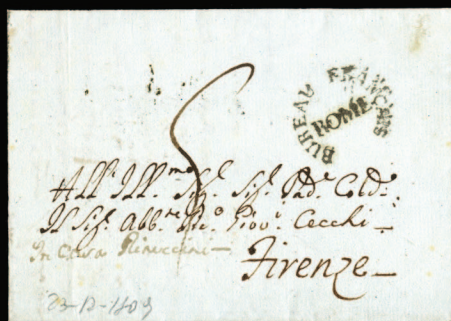 BUREAU FRANCAIS
ROME
5
All' Ill.mo Sig.r Sig. Pad.e Cold.o
Il Sig. Abb.te Giov. Cecchi
In Casa Rinuccini
Firenze
23-12-1809